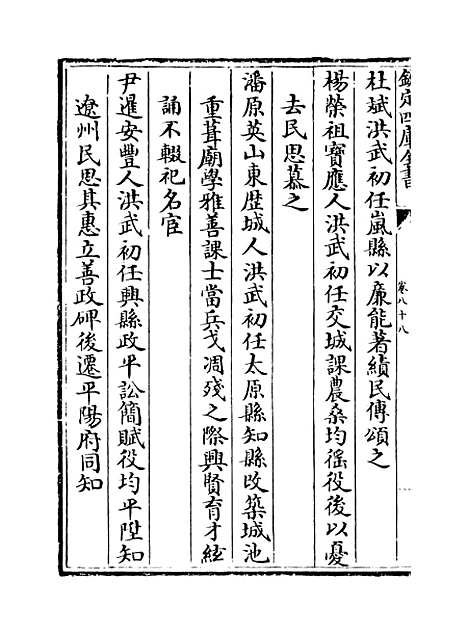 欽定四庫全書
卷八十八
杜斌洪武初任嵐縣以廉能著績民傳頌之
楊榮祖寶應人洪武初任交城課農桑均徭役後以憂
去民思慕之
潘原英山東歴城人洪武初任太原縣知縣改築城池
重葺廟學雅善課士當兵戈凋殘之際興賢育才絃
誦不輟祀名宦
尹暹安豐人洪武初任興縣政平訟簡賦役均平陞知
遼州民思其惠立善政碑後遷平陽府同知